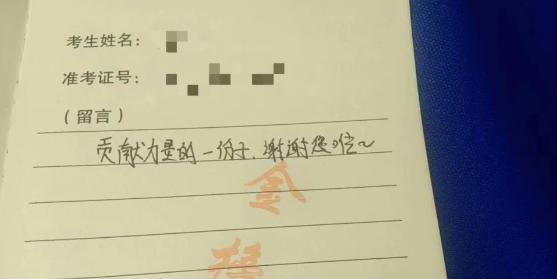 考生姓名:
准考证号:
(留言)
贡献力量的一份子,谢谢您啦~
金